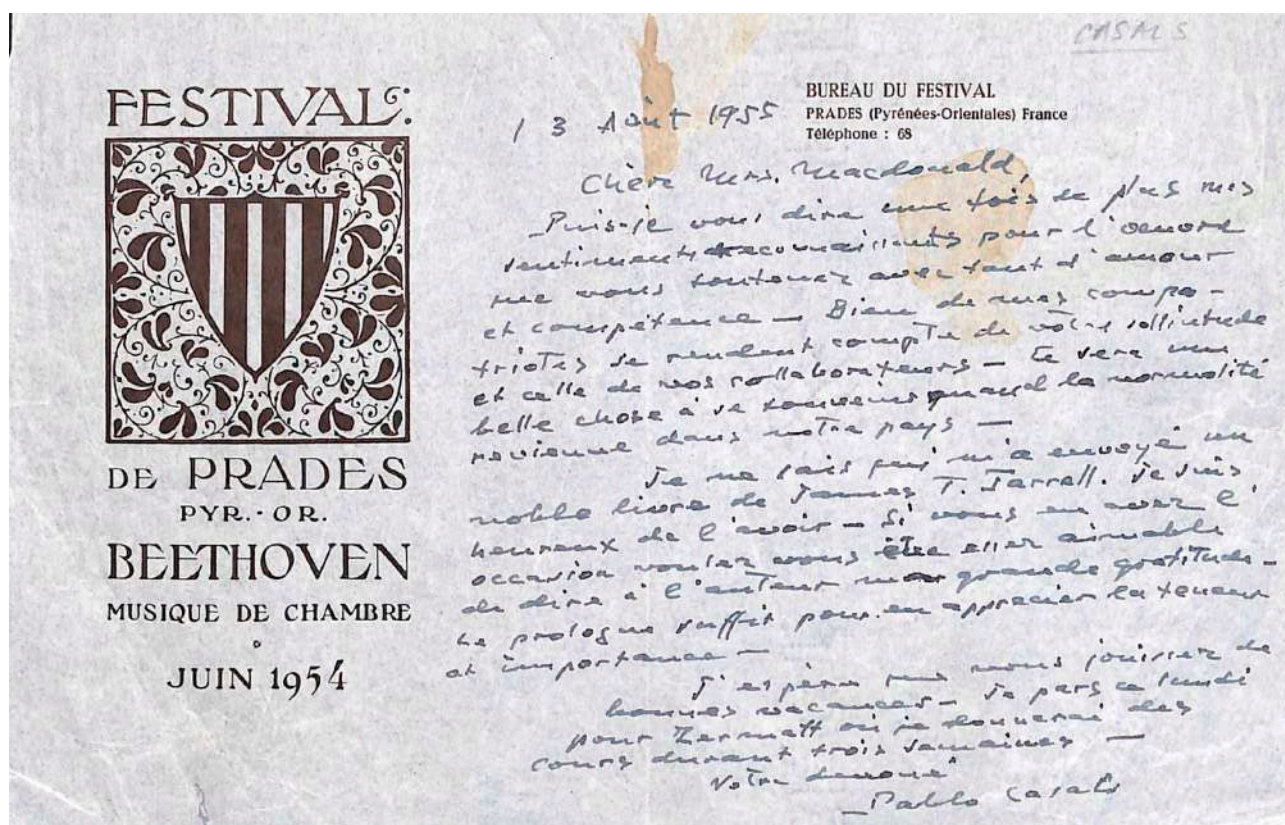 CASALS
FESTIVAL:
DE PRADES
PYR.-OR.
BEETHOVEN
MUSIQUE DE CHAMBRE
JUIN 1954
BUREAU DU FESTIVAL
PRADES (Pyrénées-Orientales) France
Téléphone : 68
13 Août 1955
Chère Mrs. Macdonald,
Puis-je vous dire une fois de plus mes
sentiments reconnaissants pour l'oeuvre
que vous soutenez avec tant d'amour
et compétence — Bien de mes compa-
triotes se rendent compte de votre sollicitude
et celle de vos collaborateurs — Ce sera une
belle chose à se souvenir quand la normalité
revienne dans notre pays —
Je ne sais qui m'a envoyé un
noble livre de James T. Farrell. Je suis
heureux de l'avoir — Si vous en avez l'
occasion voulez vous être assez aimable
de dire à l'auteur ma grande gratitude —
Le prologue suffit pour en apprecier la teneur
et importance —
J'espère que vous jouissez de
bonnes vacances — Je pars ce lundi
pour Zermatt où je donnerai des
cours durant trois semaines —
Votre devoué
Pablo Casals